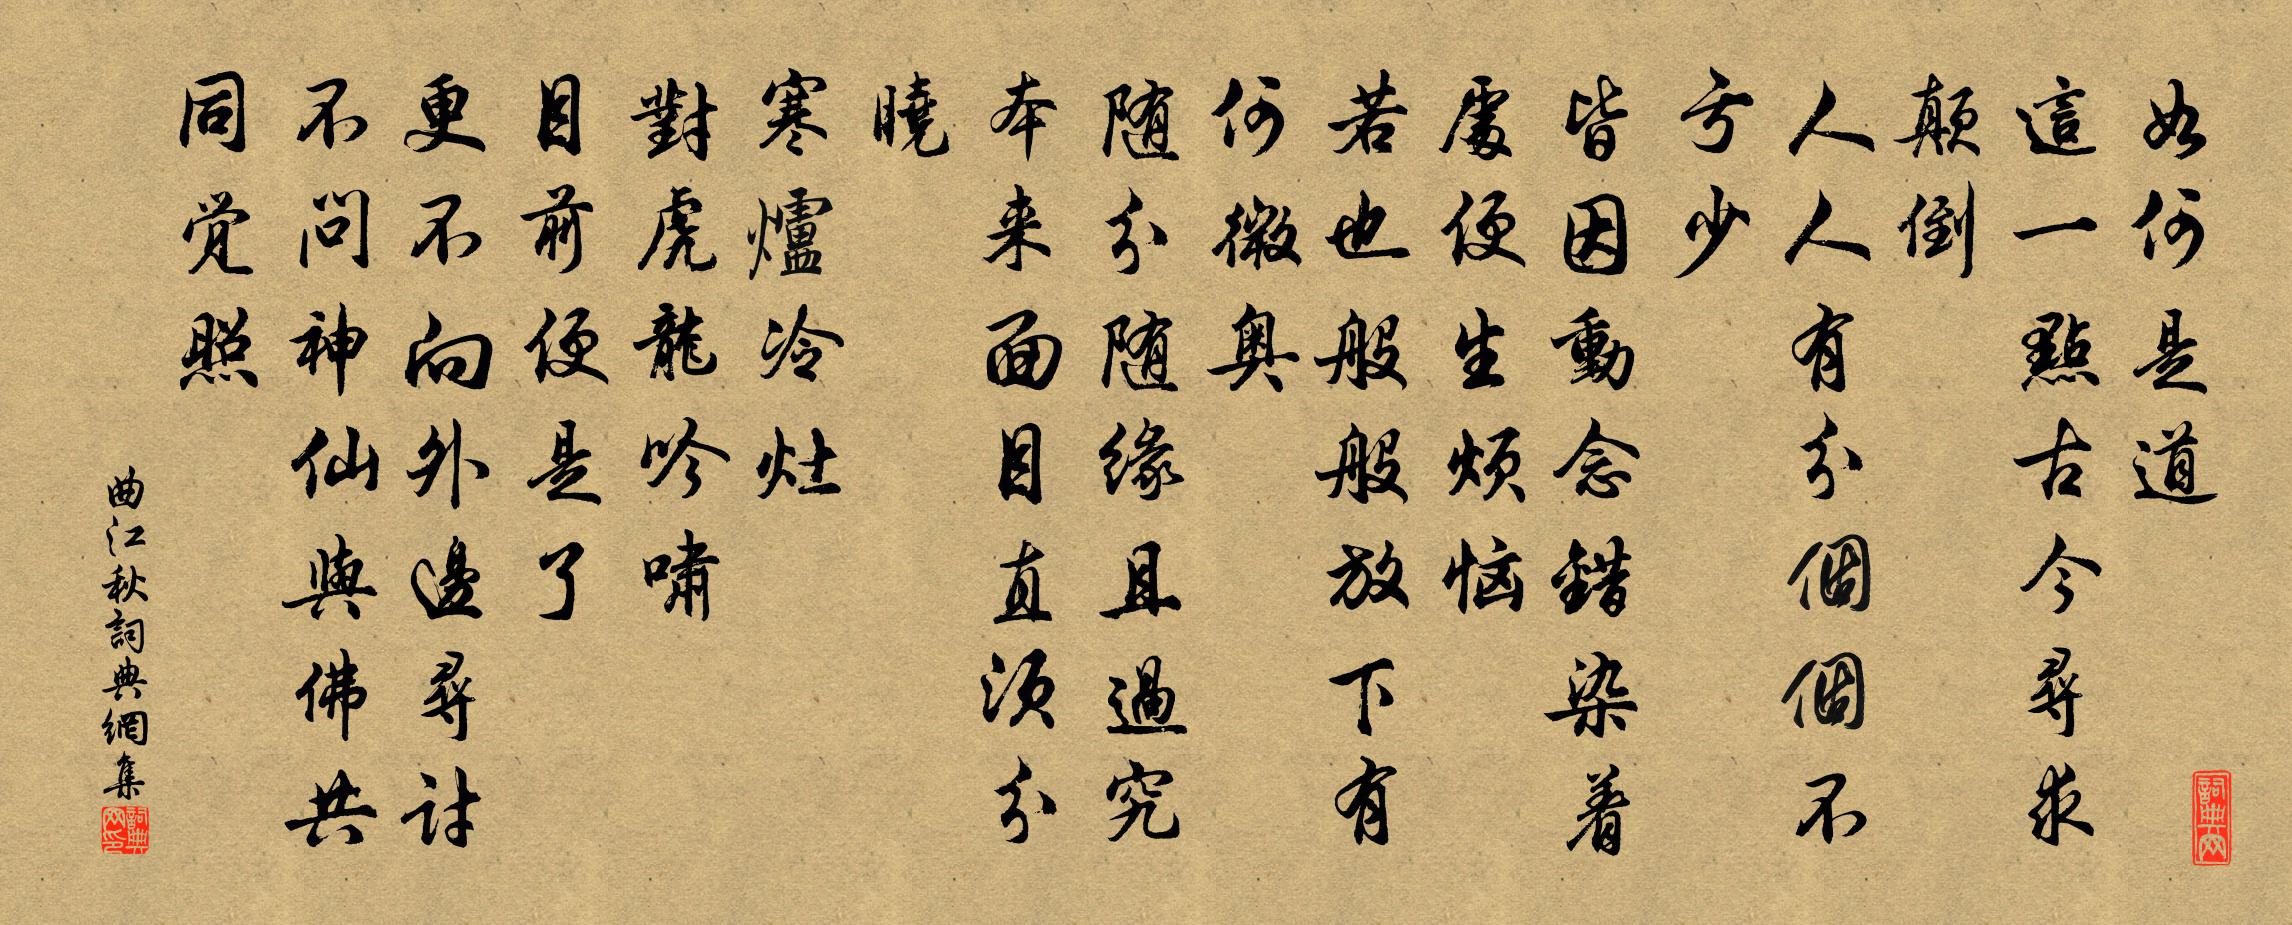 如何是道
這一點古今尋求
顛倒
人人有分個個不
亏少
皆因動念錯染着
處便生煩恼
若也般般放下有
何微奥
随分随缘且過究
本来面目直须分
曉
寒爐冷灶
對虎龍吟嘯
目前便是了
更不向外邊尋討
不问神仙與佛共
同觉照
曲江秋詞典網集
詞典网
詞典网印